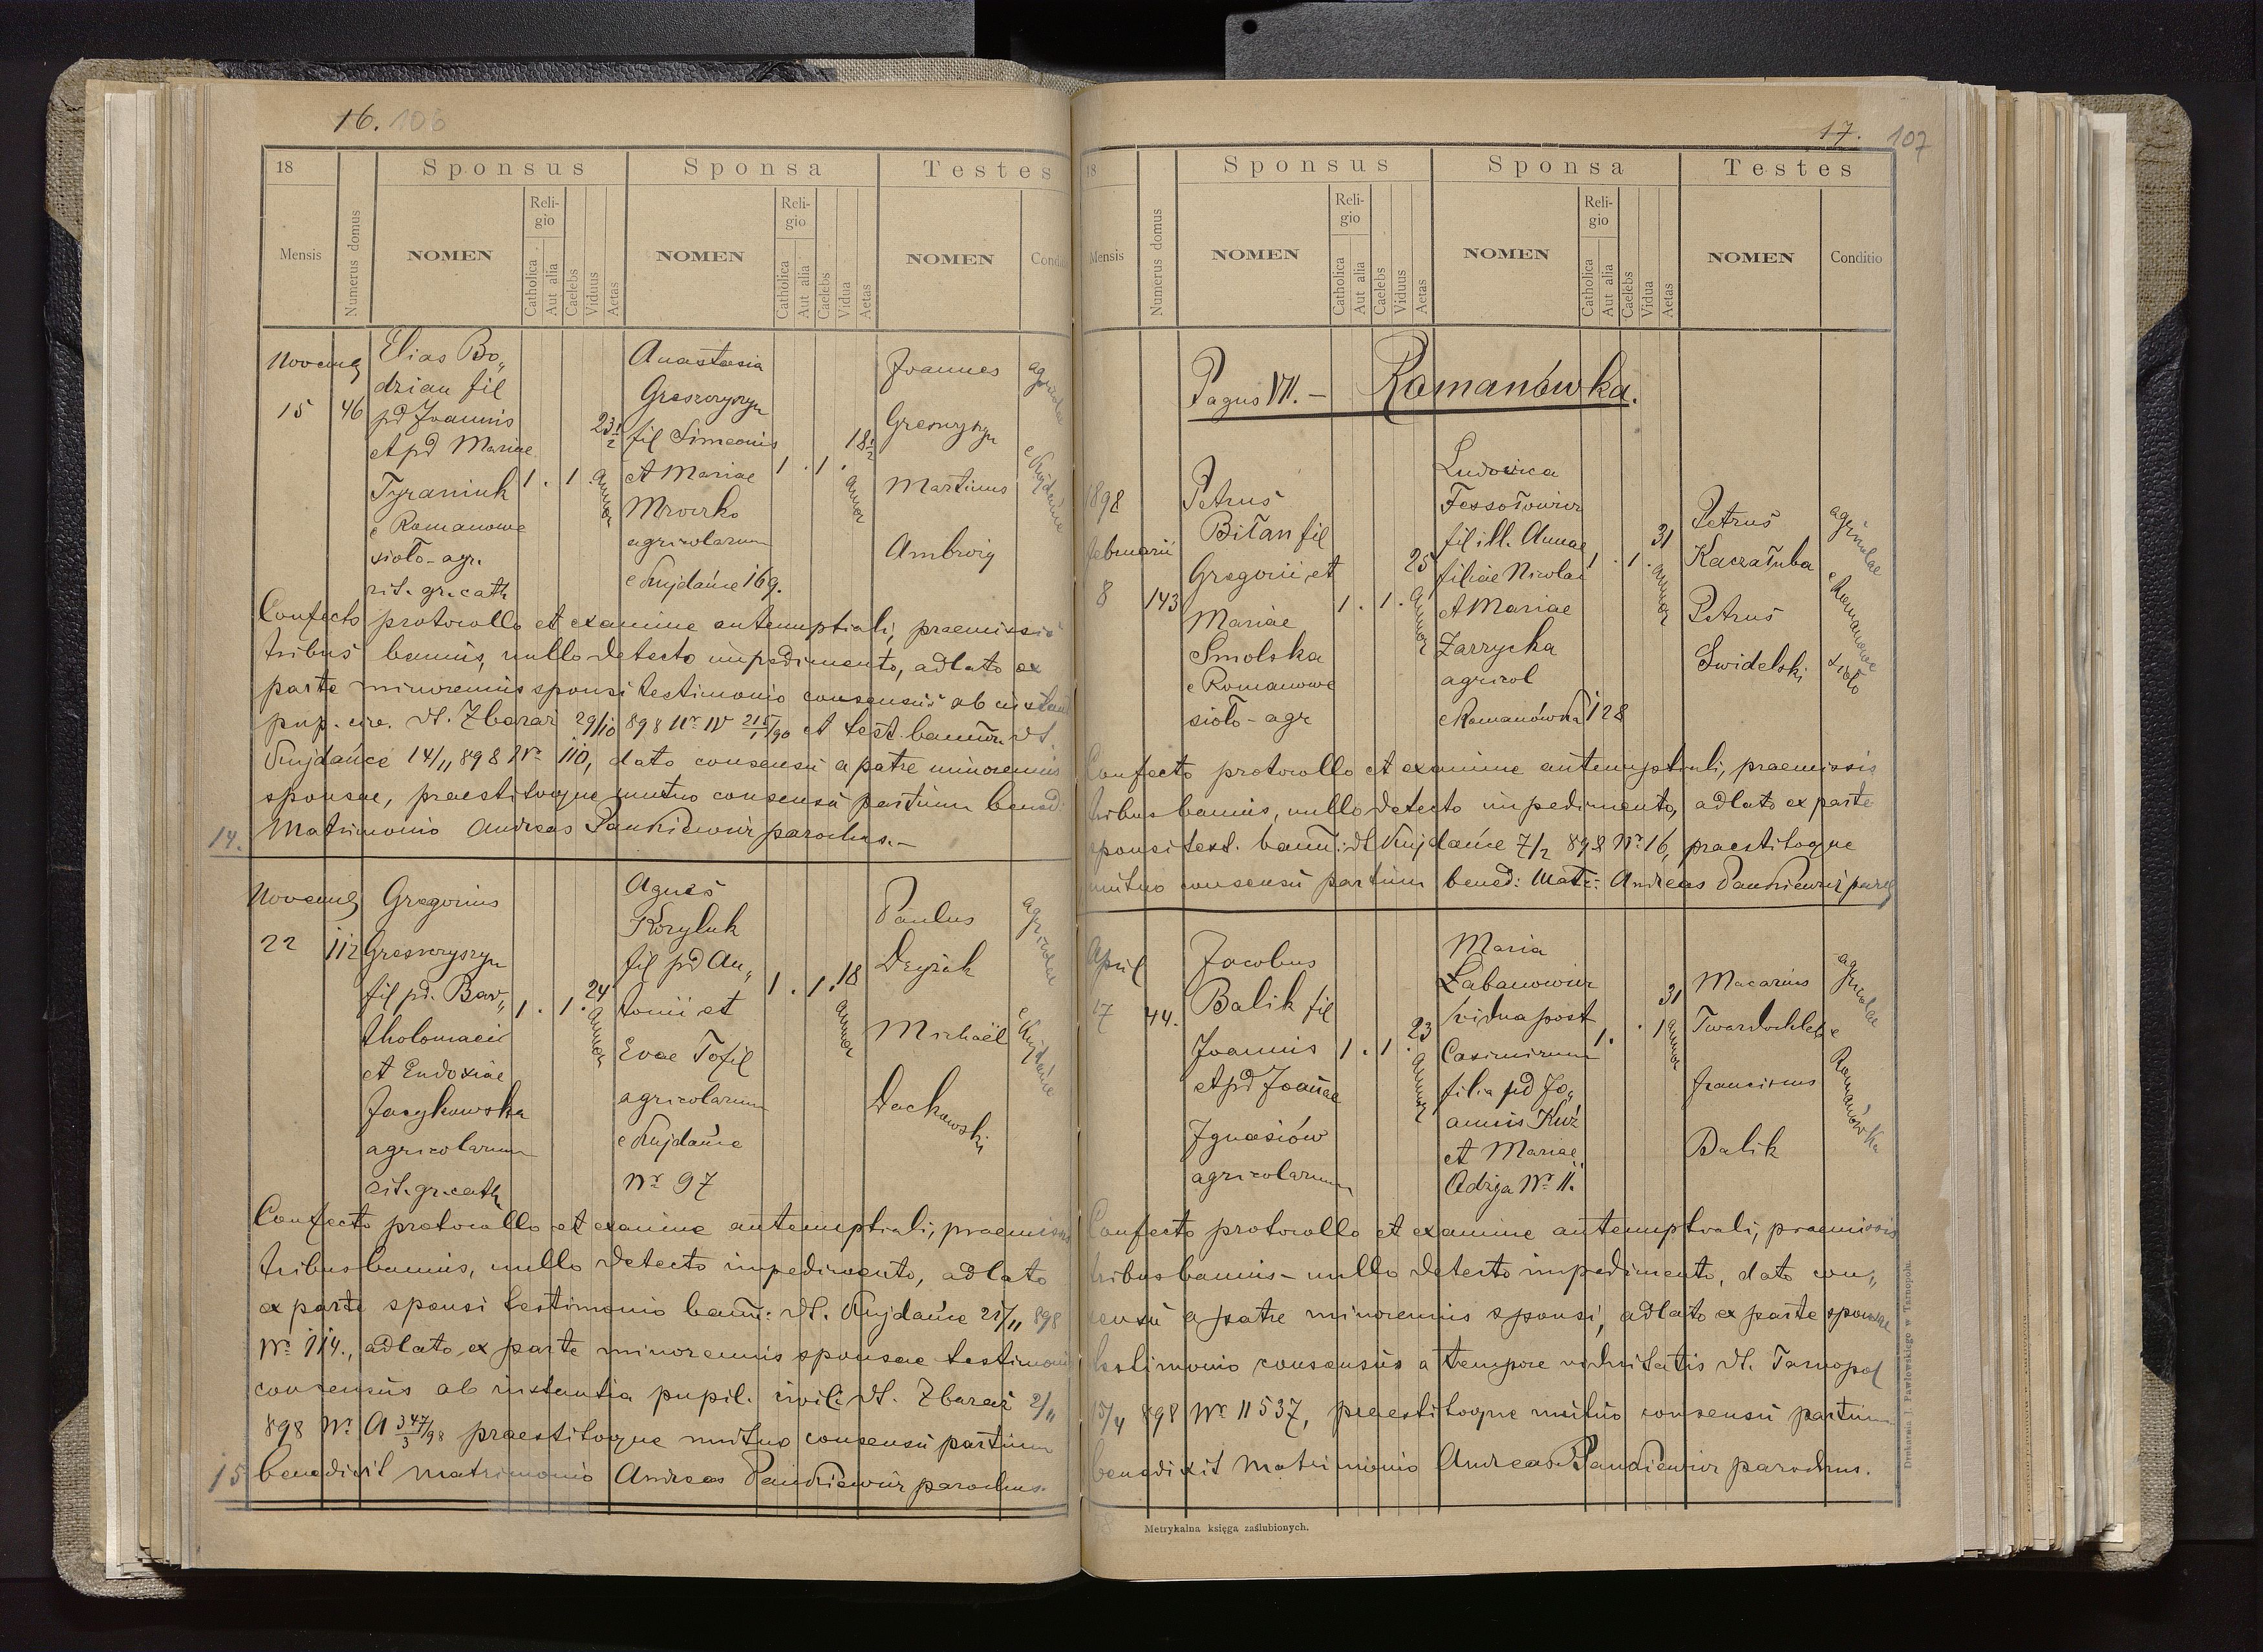 16. 106
18
Sponsus
Sponsa
Testes
Mensis
Numerus domus
NOMEN
Religio
Catholica
Aut alia
Caelebs
Viduus
Aetas
NOMEN
Religio
Catholica
Aut alia
Caelebs
Vidua
Aetas
NOMEN
Novemb
15
46
Elias Bo„
dzian fil
pd Joannis
et pd Mariae
Tyraniuk
e Romanowe
sioło - agr.
rit. gr. cath
1 . 1 .
23 1/2
annor
Anastasia
fil Simeonis
et Mariae
Mroczko
agricolarum
e Kujdańce 169.
1 . 1 .
18 1/2
annor
Joannes
Martinus
Ambroży
agricolae
e Kujdańce
Confecto protocollo et examine antenuptiali, praemissis
tribus bannis, nullo detecto impedimento, adlato ex
parte minorennis sponsi testimonio consensus ab
pup. civ. dt. Zbaraż 29/10 898 Nr IV 215/1/90 et test. dt.
Kujdańce 14/11 898 Nr 110, dato consensu a patre minorennis
sponsae, praestitoque mutuo consensu partium bened:
14. Matrimonio Andreas Pankiewicz parochus. -
Novemb
22
112
Gregorius
fil pd. Bar„
tholomaei
et Eudoxiae
Jasykowska
agricolarum
rit. gr. cath
1 . 1 .
24
annor
Agnes
Korzyluk
fil pd An„
tonii et
Evae Tofil
agricolarum
e Kujdańce
Nr 97
1 . 1 .
18
annor
Paulus
Michaël
Dackowski
agricolae
e Kujdańce
Confecto protocollo et examine antenuptiali, praemissis
tribus bannis, nullo detecto impedimento, adlato
ex parte sponsi testimonio bann: dt. Kujdańce 21/11 898
Nr 114., adlato ex parte minorennis sponsae testimonio
consensus ab instantia pupil. civili dt. Zbaraż 2/11
898 Nr A 347/3/98 praestitoque mutuo consensu partium
15 benedixit matrimonio Andreas Pankiewicz parochus.
17. 107
18
Sponsus
Sponsa
Testes
Mensis
Numerus domus
NOMEN
Religio
Catholica
Aut alia
Caelebs
Viduus
Aetas
NOMEN
Religio
Catholica
Aut alia
Caelebs
Vidua
Aetas
NOMEN
Conditio
Pagus VII. - Romanówka.
1898
februarii
8
143
Petrus
Biłan fil
Gregorii et
Mariae
Smolska
e Romanowe
sioło - agr
1 . 1 .
25
annor
Ludovica
fil ill. Annae
filiae Nicolai
et Mariae
Zarzycka
agricol
e Romanówka 128
1 . 1 .
31
annor
Petrus
Kaczałuba
Petrus
Swidelski
agricolae
e Romanowe
sioło
Confecto protocollo et examine antenuptiali, praemissis
tribus bannis, nullo detecto impedimento, adlato ex parte
sponsi test. bann: dt Kujdańce 7/2 898 Nr 16, praestitoque
mutuo consensu partium bened: Matr: Andreas Pankiewicz
April
17
44.
Jacobus
Balik fil
Joannis
et pd Joannae
Ignasiów
agricolarum
1 . 1 .
23
annor
Maria
Łabanowicz
vidua post
Casimirum
filia pd Jo„
annis Kuź
et Mariae
Odzga Nr 11.
1 . . 1
31
annor
Macarius
Twardochleb
Franciscus
Balik
agricolae
e
Romanówka
Confecto protocollo et examine antenuptiali, praemissis
tribus bannis - nullo detecto impedimento, dato con„
sensu a patre minorennis sponsi, adlato ex parte sponsae
testimonio consensus a tempore viduitatis dt. Tarnopol
15/4 898 Nr 11537, praestitoque mutuo consensu partium
benedixit Matrimonio Andreas Pankiewicz parochus.
Metrykalna księga zaślubionych.
Drukarnia J. Pawłowskiego w Tarnopolu.